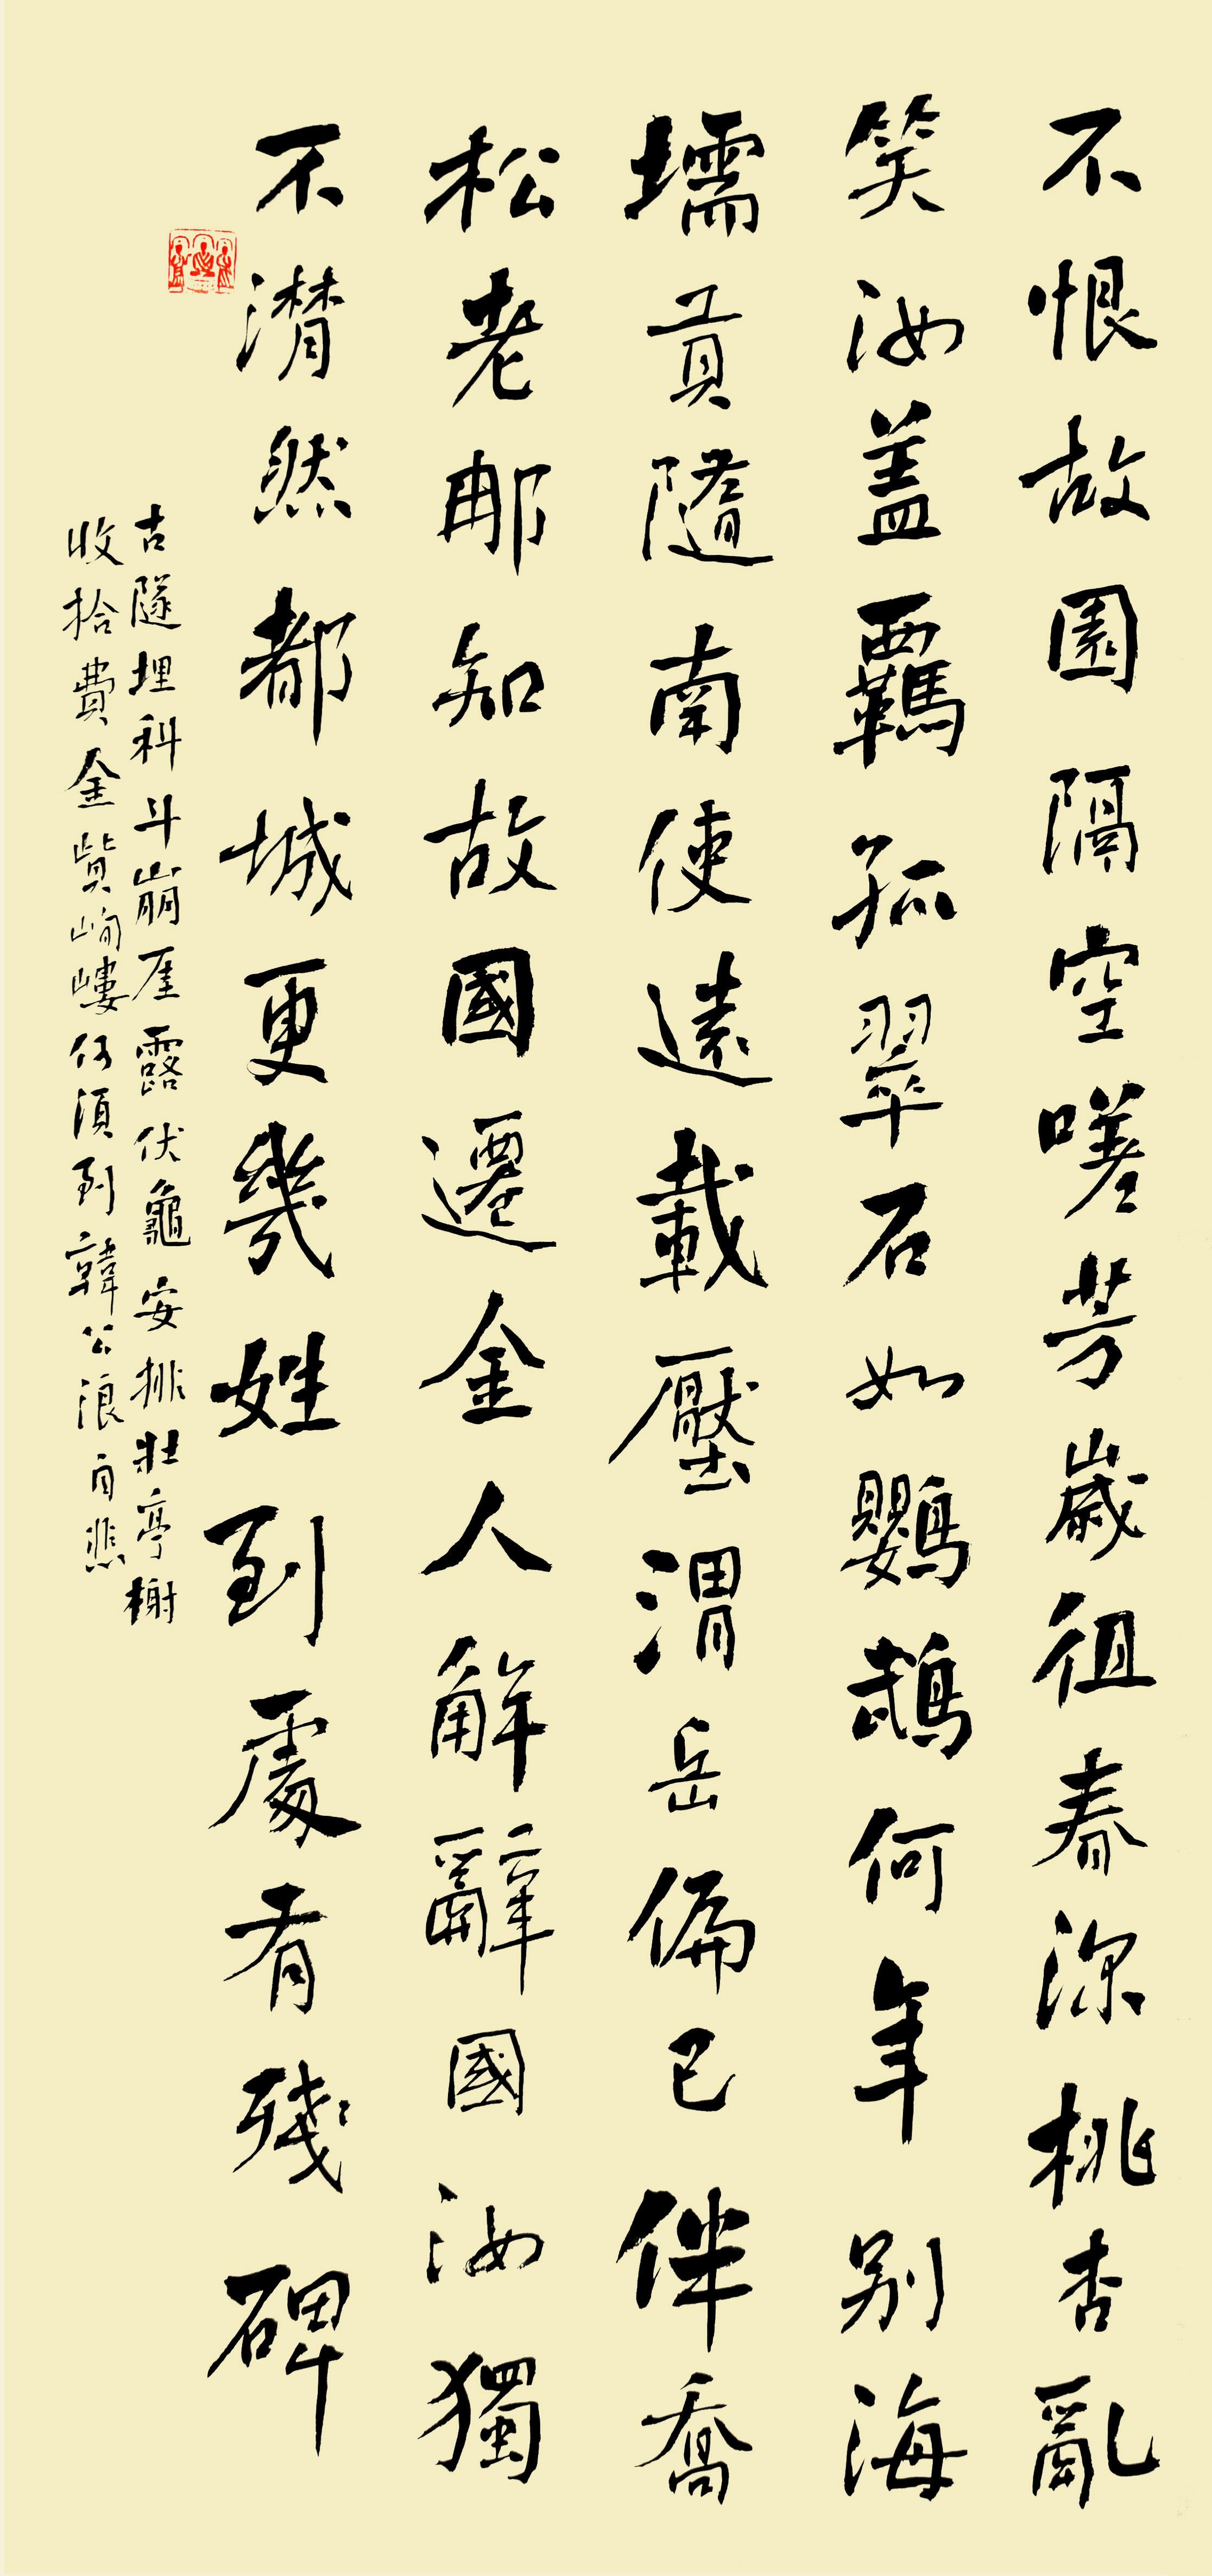 不恨故園隔空嗟芳歲徂春深桃杏亂
笑汝盖羈孤翠石如鸚鵡何年別海
壖貢隨南使遠載壓渭舟偏已伴喬
松老那知故國遷金人解辭國汝獨
不潸然都城更幾姓到處有殘碑
古隧埋科斗崩厓露伏龜安排壯亭榭
收拾費金貲岣嶁何須到韓公浪自悲